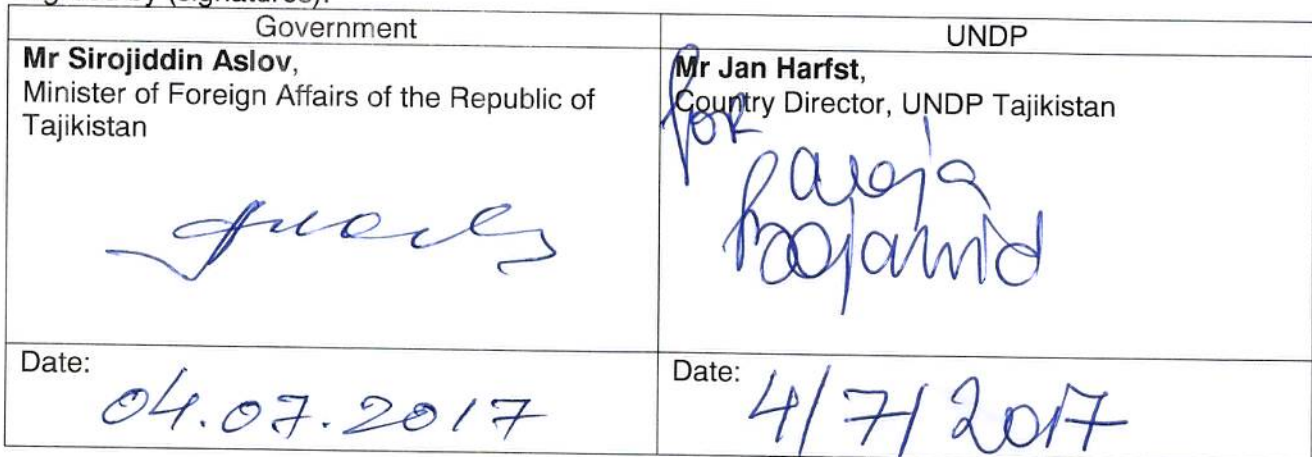 Government
UNDP
Mr Sirojiddin Aslov,
Minister of Foreign Affairs of the Republic of
Tajikistan
Mr Jan Harfst,
Country Director, UNDP Tajikistan
for
Date:
04.07.2017
Date:
4/7/2017